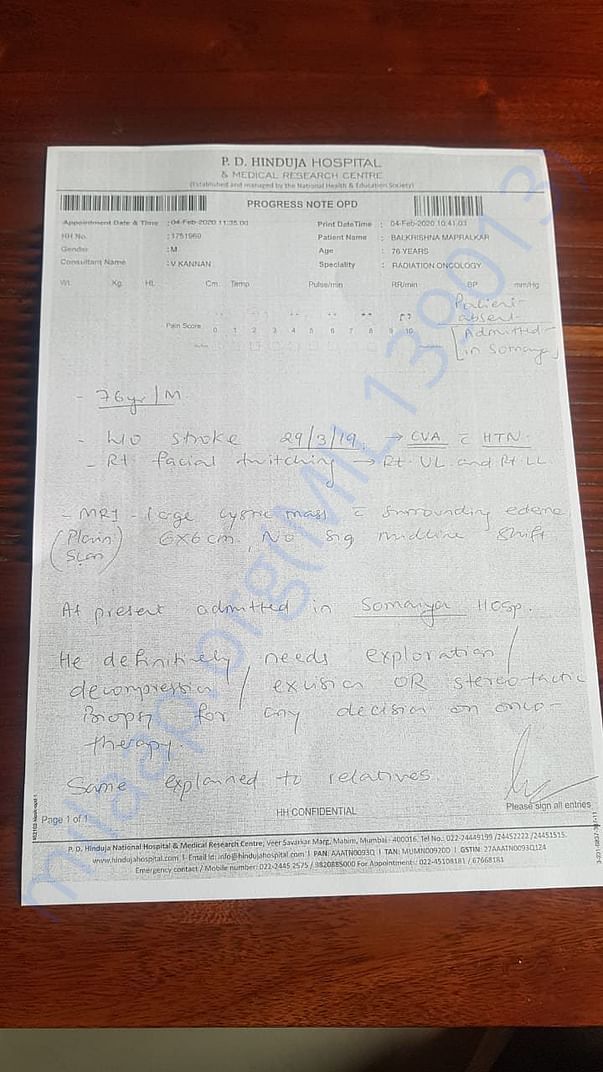 P. D. HINDUJA HOSPITAL
& MEDICAL RESEARCH CENTRE
(Established and managed by the National Health & Education Society)
PROGRESS NOTE OPD
Appointment Date & Time : 04-Feb-2020 11:35:00 Print DateTime : 04-Feb-2020 10:41:03
HH No. : 1751969 Patient Name : BALKRISHNA MAPRALKAR
Gender : M Age : 76 YEARS
Consultant Name : V KANNAN Speciality : RADIATION ONCOLOGY
Wt. Kg. Ht. Cm. Temp Pulse/min RR/min BP mm/Hg
Patient
absent
Admitted
in Somaiya
Pain Score 0 1 2 3 4 5 6 7 8 9 10
- 76yr / M
- h/o stroke 29/3/19. → CVA c̄ HTN.
- Rt facial twitching → Rt UL and Rt LL
- MRI - large cystic mass c̄ surrounding edema
(Plain Scan) 6x6 cm. No sig midline shift.
At present admitted in Somaiya Hosp.
He definitively needs exploration /
decompression / excision OR stereotactic
Biopsy for any decision on onco-
therapy.
Same explained to relatives.
Please sign all entries
HH CONFIDENTIAL
Page 1 of 1
P. D. Hinduja National Hospital & Medical Research Centre, Veer Savarkar Marg, Mahim, Mumbai - 400016. Tel No.: 022-24449199 /24452222 /24451515.
www.hindujahospital.com I Email Id: info@hindujahospital.com I PAN: AAATN0093Q I TAN: MUMN00920D I GSTIN: 27AAATN0093Q1Z4
Emergency contact / Mobile number: 022-2445 2575 / 9820885000 For Appointment: 022-45108181 / 67668181
milaap.org(MIL 139013)